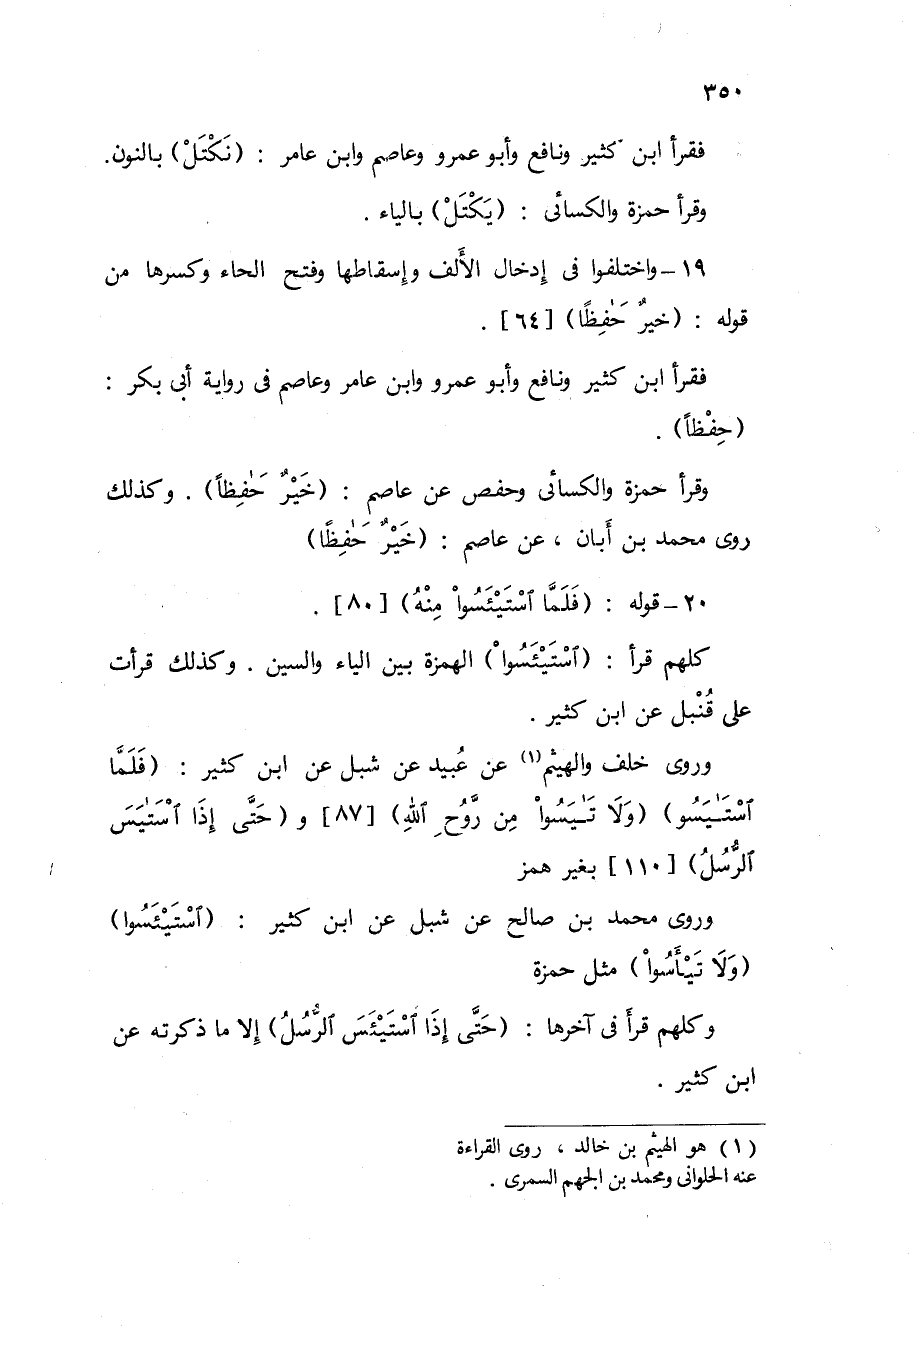 ٣٥٠
فقرأ ابن كثير ونافع وأبو عمرو وعاصم وابن عامر : (نَكْتَلْ) بالنون.
وقرأ حمزة والكسائى : (يَكْتَلْ) بالياء .
١٩ – واختلفوا فى إدخال الأَلف وإسقاطها وفتح الحاء وكسرها من
قوله : (خيرٌ حَٰفِظًا) [٦٤] .
فقرأ ابن كثير ونافع وأبو عمرو وابن عامر وعاصم فى رواية أبى بكر :
(حِفْظاً) .
وقرأ حمزة والكسائى وحفص عن عاصم : (خَيْرٌ حَٰفِظاً) . وكذلك
روى محمد بن أَبان ، عن عاصم : (خَيْرٌ حَٰفِظًا)
٢٠ – قوله : (فَلَمَّا ٱسْتَيْـَٔسُوا۟ مِنْهُ) [٨٠] .
كلهم قرأ : (ٱسْتَيْـَٔسُوا۟) الهمزة بين الياء والسين . وكذلك قرأت
على قُنْبُل عن ابن كثير .
وروى خلف والهيثم(١) عن عُبيد عن شبل عن ابن كثير : (فَلَمَّا
ٱسْتَـٰيَسُو) (وَلَا تَـٰيَسُوا۟ مِن رَّوْحِ ٱللهِ) [٨٧] و (حَتَّى إِذَا ٱسْتَـٰيَسَ
ٱلرُّسُلُ) [١١٠] بغير همز
وروى محمد بن صالح عن شبل عن ابن كثير : (ٱسْتَيْـَٔسُوا)
(وَلَا تَيْـَٔسُوا۟) مثل حمزة
وكلهم قرأَ فى آخرها : (حَتَّى إِذَا ٱسْتَيْـَٔسَ ٱلرُّسُلُ) إلا ما ذكرته عن
ابن كثير .
(١) هو الهيثم بن خالد ، روى القراءة
عنه الحلوانى ومحمد بن الجهم السمرى .